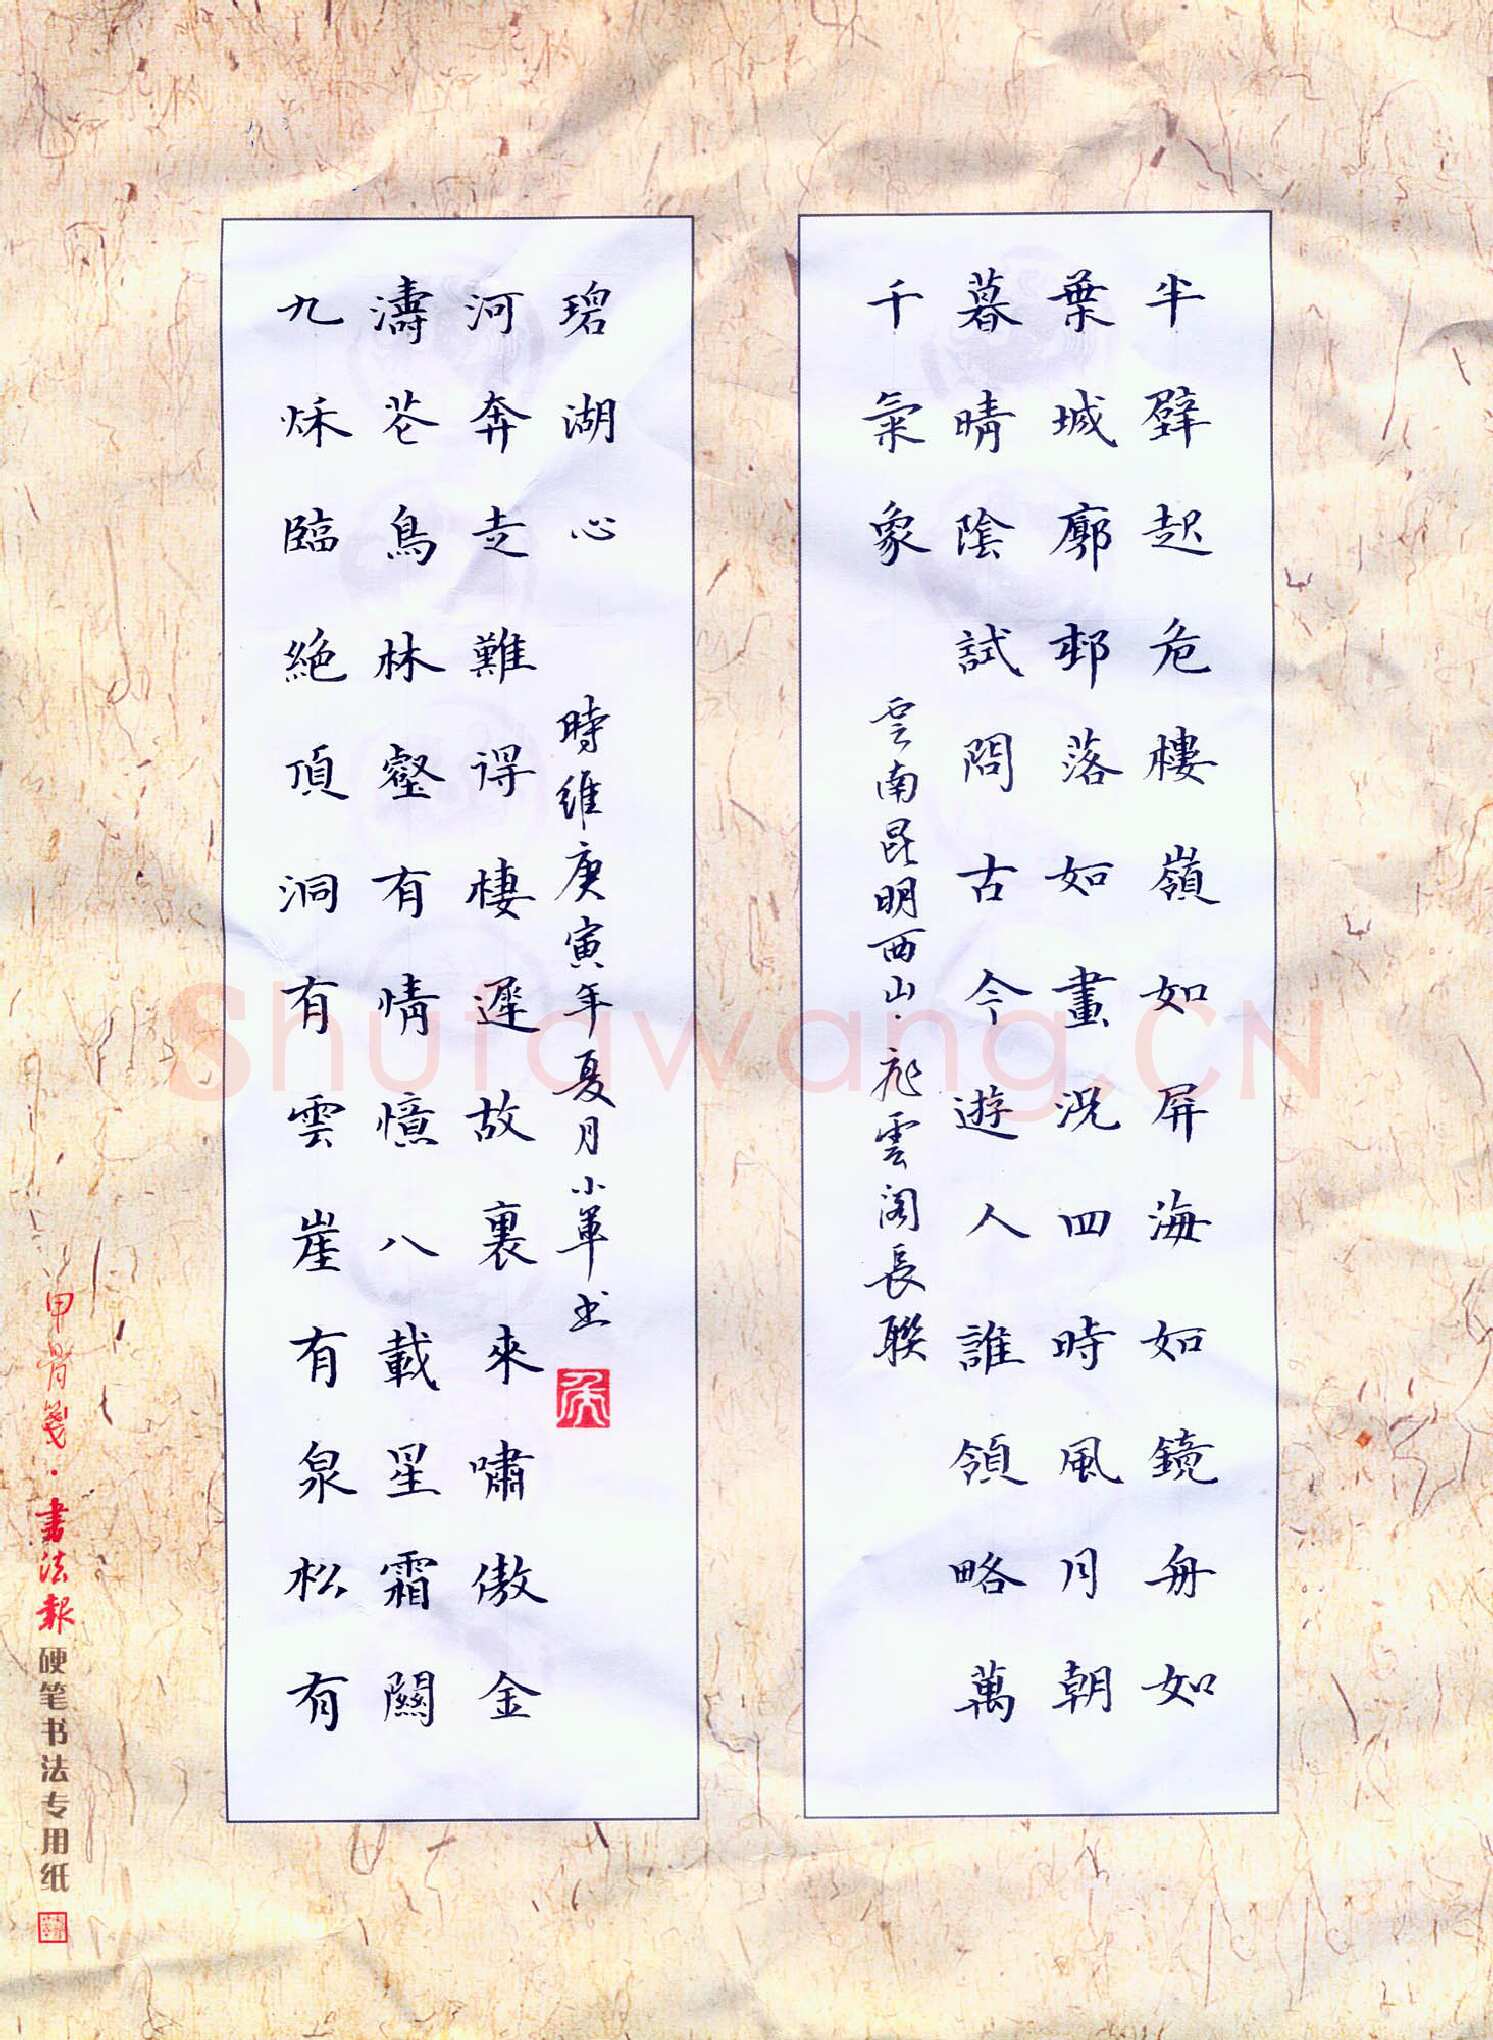 半壁起危樓嶺如屏海如鏡舟如
葉城廓邨落如畫況四時風月朝
暮晴陰試問古今遊人誰領略萬
千氣象
雲南昆明西山·飛雲閣長聯
九秌臨絕頂洞有雲崖有泉松有
濤芲鳥林壑有情憶八載星霜關
河奔走難得棲遲故裏來嘯傲金
碧湖心
時維庚寅年夏月小軍书
甲骨箋·書法報硬笔书法专用纸
Shufawang.CN